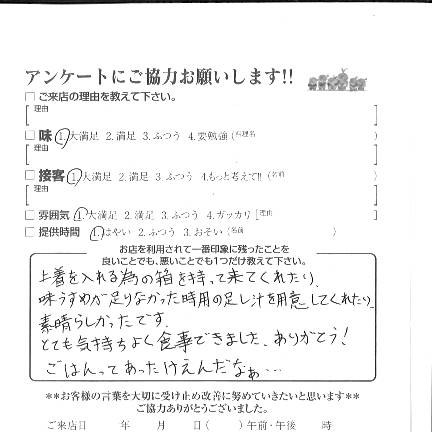 アンケートにご協力お願いします!!
□ご来店の理由を教えて下さい。
理由
□味 1.大満足 2.満足 3.ふつう 4.要勉強(料理名 )
理由
□接客 1.大満足 2.満足 3.ふつう 4.もっと考えて!!(名前 )
理由
□雰囲気 1.大満足 2.満足 3.ふつう 4.ガッカリ[理由 ]
□提供時間 1.はやい 2.ふつう 3.おそい(名前 )
お店を利用されて一番印象に残ったことを
良いことでも、悪いことでも1つだけ教えて下さい。
上着を入れる為の箱を持って来てくれたり、
味うすめが足りなかった時用の足し汁を用意してくれたり、
素晴らしかったです。
とても気持ちよく食事できました。ありがとう!
ごはんってあったけえんだなぁ…
**お客様の言葉を大切に受け止め改善に努めていきたいと思います**
ご協力ありがとうございました。
ご来店日 年 月 日( )午前・午後 時